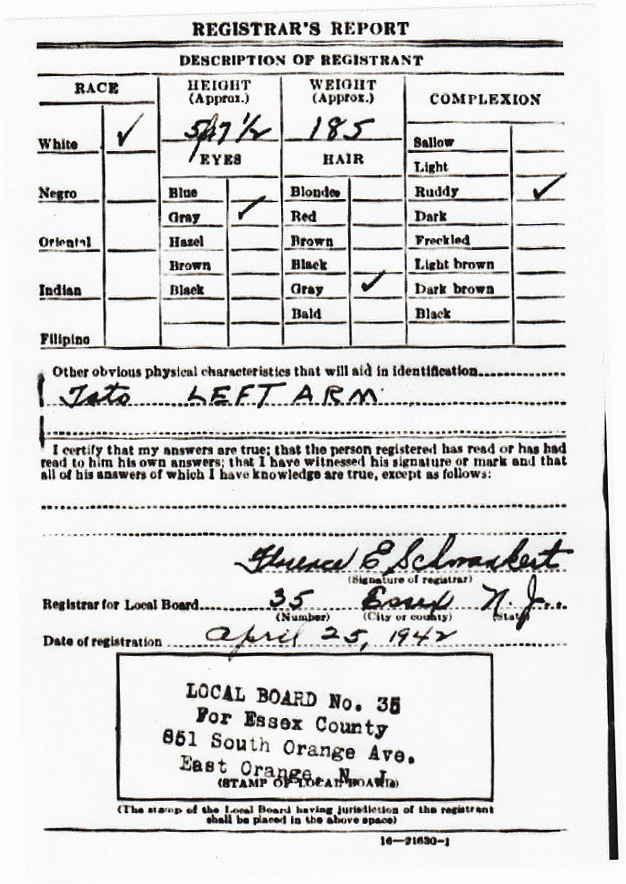 REGISTRAR'S REPORT
DESCRIPTION OF REGISTRANT
RACE
HEIGHT
(Approx.)
WEIGHT
(Approx.)
COMPLEXION
5/7 1/2
185
White ✓
Negro
Oriental
Indian
Filipino
EYES
Blue
Gray ✓
Hazel
Brown
Black
HAIR
Blonde
Red
Brown
Black
Gray ✓
Bald
Sallow
Light
Ruddy ✓
Dark
Freckled
Light brown
Dark brown
Black
Other obvious physical characteristics that will aid in identification
Tato LEFT ARM
I certify that my answers are true; that the person registered has read or has had
read to him his own answers; that I have witnessed his signature or mark and that
all of his answers of which I have knowledge are true, except as follows:
Florence E. Schwankert
(Signature of registrar)
Registrar for Local Board 35 Essex N.J.
(Number) (City or county) (State)
Date of registration April 25, 1942
LOCAL BOARD No. 35
For Essex County
851 South Orange Ave.
East Orange, N. J.
(STAMP OF LOCAL BOARD)
(The stamp of the Local Board having jurisdiction of the registrant
shall be placed in the above space)
16—21630-1